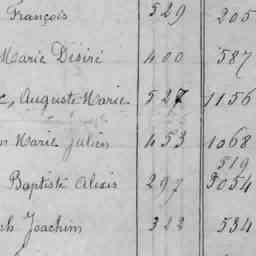 François 529 205
Marie Désiré 400 587
Auguste Marie 527 1156
Marie Julien 453 1068
519
Baptiste Alexis 297 3054
Joachim 322 534